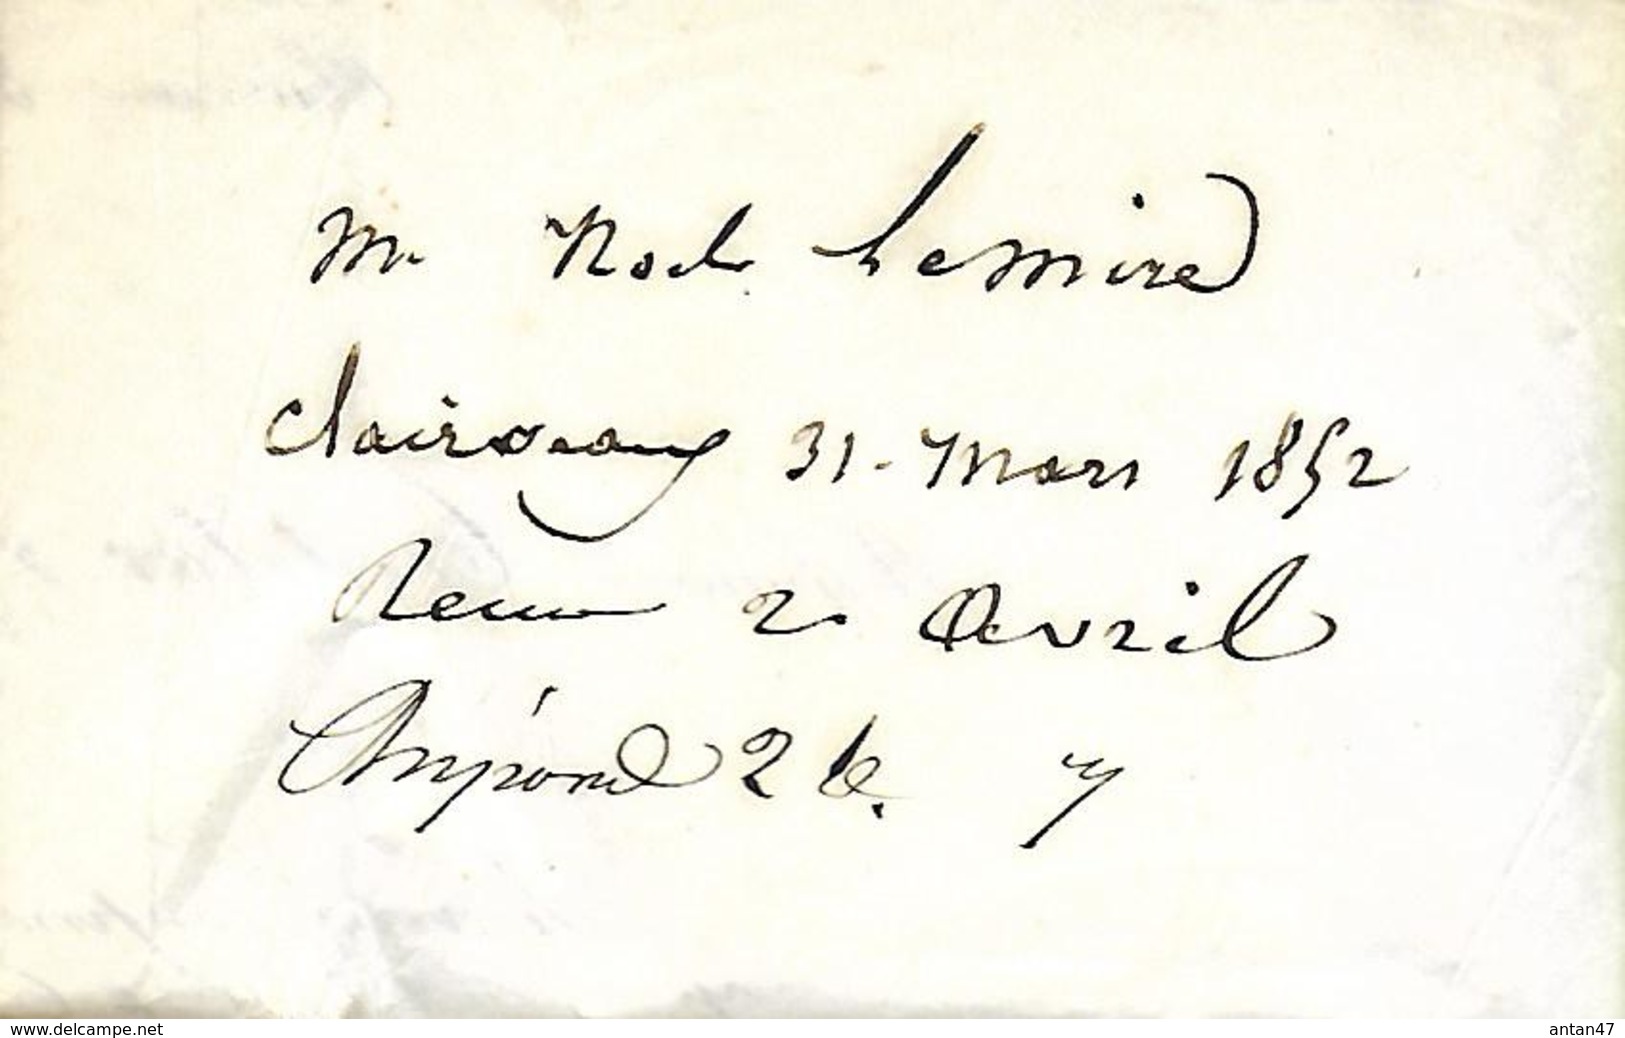 Mr Roch Lemire
Clairvaux 31. Mars 1852
Recu 2 Avril
Répond 2 le. 7
www.delcampe.net
antan47